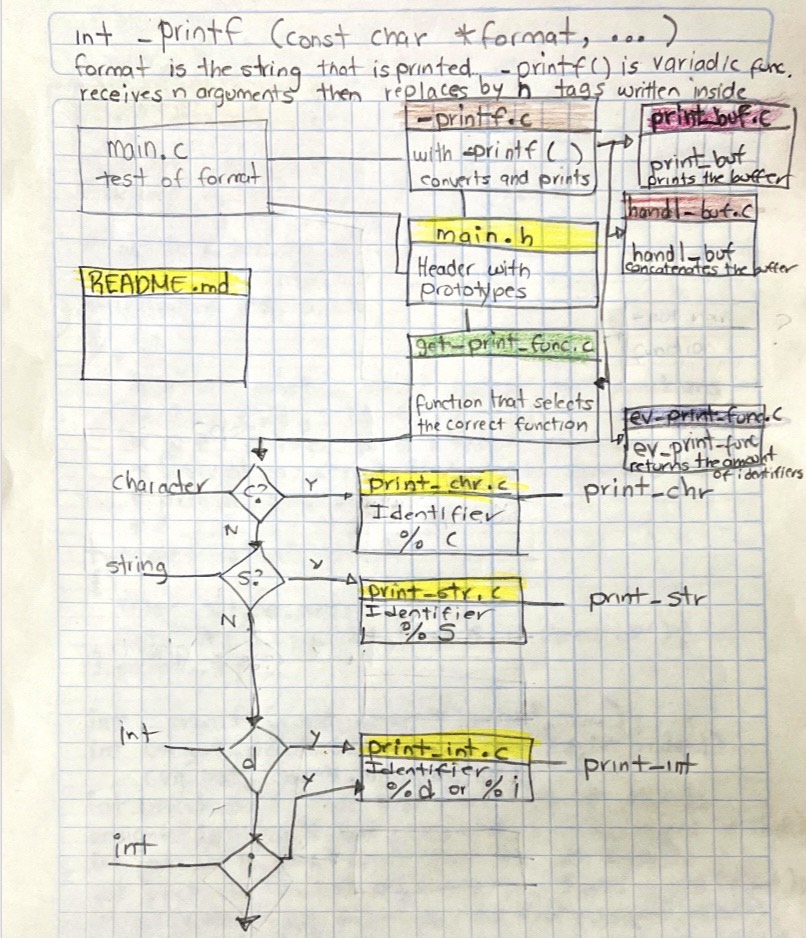 int _printf (const char *format, ...)
format is the string that is printed... _printf() is variadic func.
receives n arguments then replaces by n tags written inside
main.c
test of format
_printf.c
with _printf( )
converts and prints
print_buf.c
print_buf
prints the buffer
handl_buf.c
handl_buf
concatenates the buffer
main.h
Header with
prototypes
README.md
get_print_func.c
function that selects
the correct function
ev_print_func.c
ev_print_func
returns the amount
of identifiers
character
C?
Y
N
print_chr.c
Identifier
% C
print_chr
string
S?
Y
N
print_str.c
Identifier
% S
print_str
int
d
Y
Y
print_int.c
Identifier
% d or % i
print_int
int
i